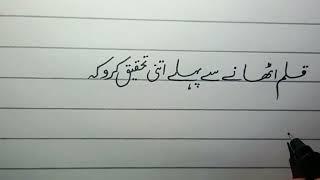 قلم اٹھانے سے پہلے اتنی تحقیق کرو کہ